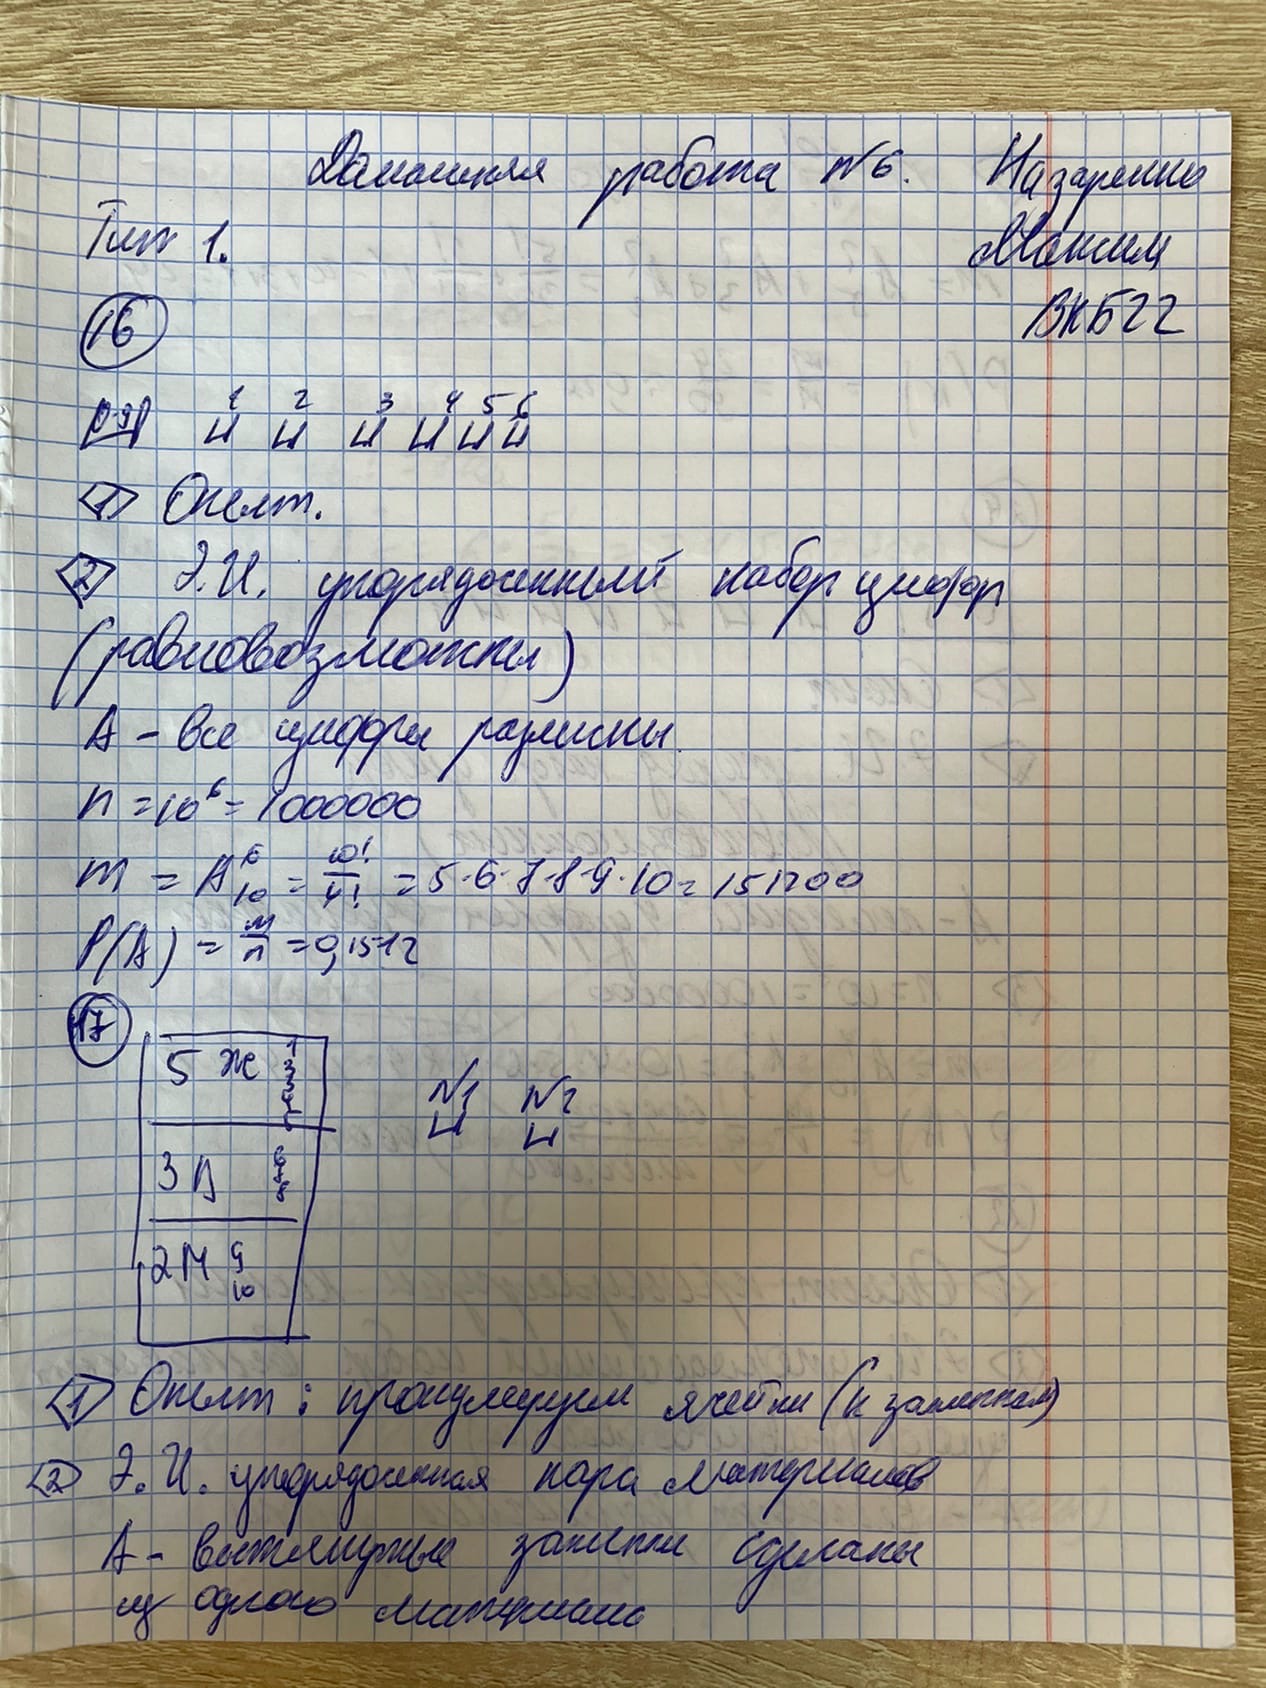 Домашняя работа №6. Назаренко
Тип 1. Максим
ВКБ22
16
0-9
1 2 3 4 5 6
<1> Опыт.
<2> Э.И. упорядоченный набор цифр
(равновозможны)
A - все цифры различны.
n = 10⁶ = 1000000
m = A₁₀⁶ = 10!/4! = 5·6·7·8·9·10 = 151200
P(A) = m/n = 0,1512
17
5 Ж 1 2 3 4 5
№1 №2
3 Л 6 7 8
2 М 9 10
<1> Опыт: пронумеруем ячейки (к запискам)
<2> Э.И. упорядоченная пара материалов
A - вытянутые записки сделаны
из одного материала